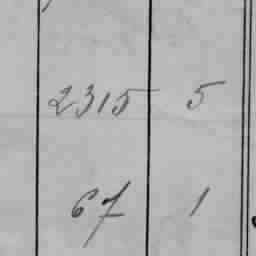 2315 5
67 1